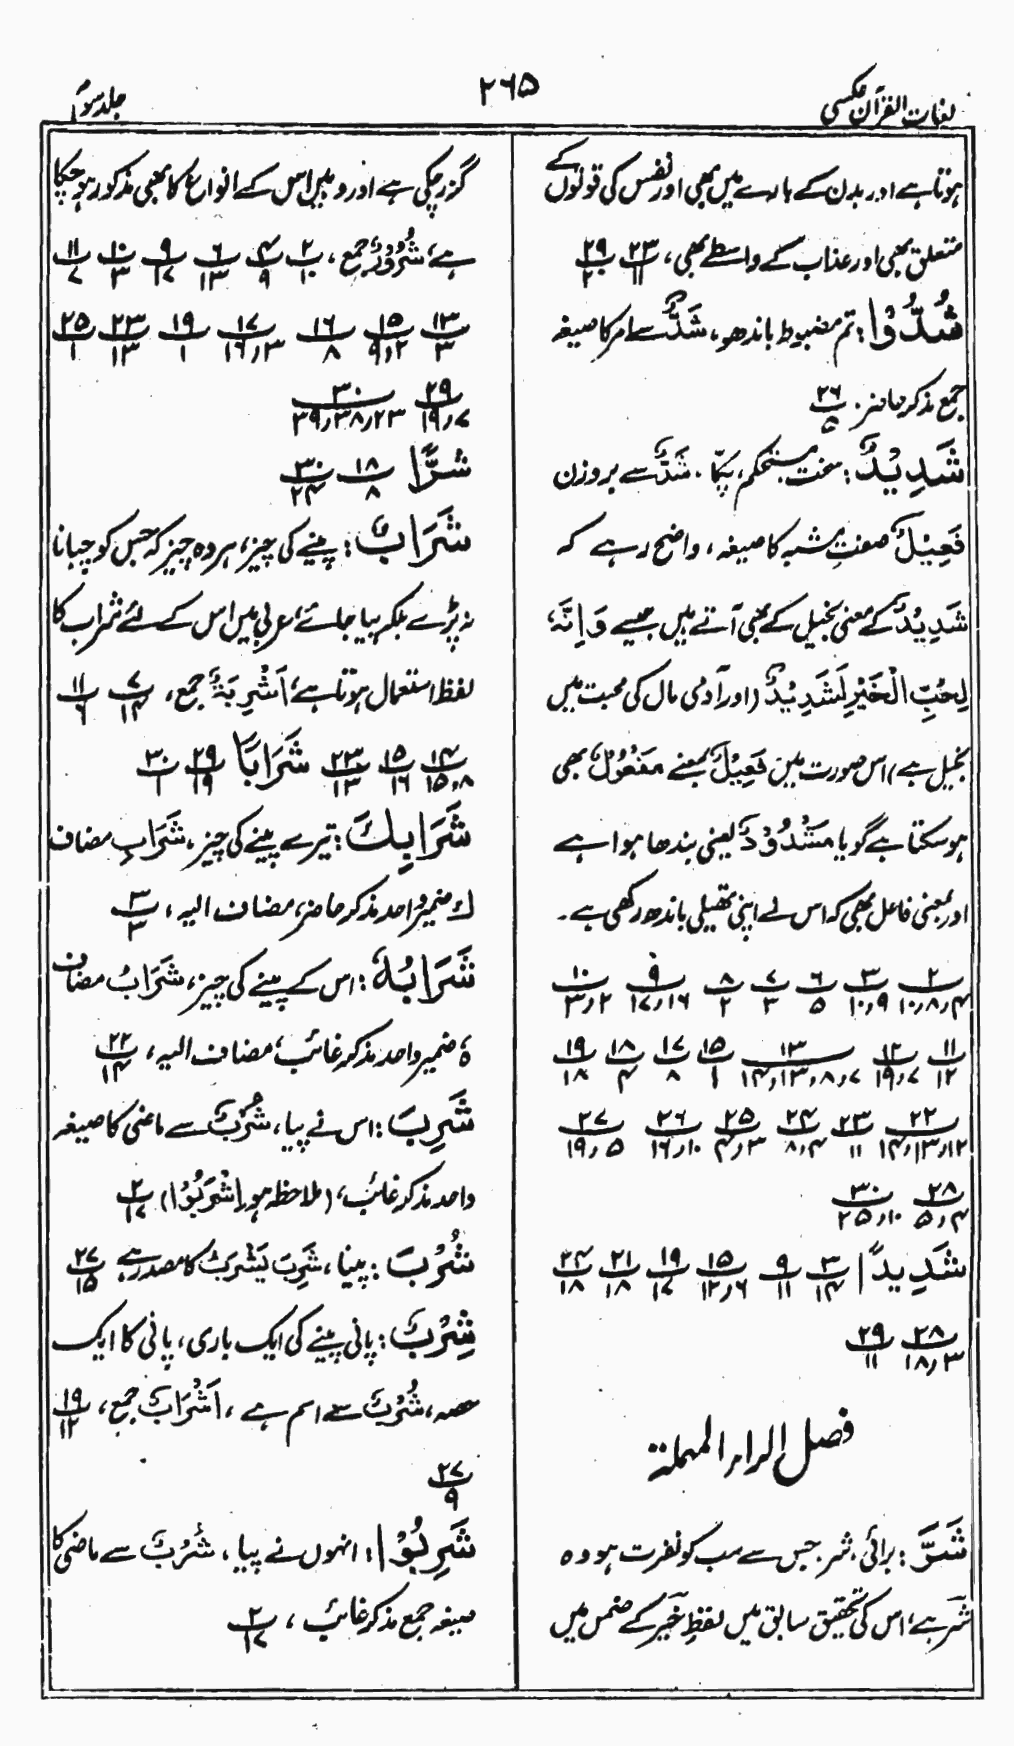 لغات القرآن عکسی
۲۶۵
جلد سوم
ہوتا ہے اور بدن کے بارے میں بھی اور نفس کی قوتوں کے
متعلق بھی اور عذاب کے واسطے بھی، ۲۳/۱۱ ۲۹/۲
شُدُّوْا: تم مضبوط باندھو، شَدٌّ سے امر کا صیغہ
جمع مذکر حاضر. ۲۶/۵
شَدِیْدٌ: سخت مستحکم، پکا. شَدٌّ سے بروزن
فَعِیْلٌ صفت مشبہ کا صیغہ، واضح رہے کہ
شَدِیْدٌ کے معنی بخیل کے بھی آتے ہیں جیسے وَاِنَّہٗ
لِحُبِّ الْخَیْرِ لَشَدِیْدٌ (اور آدمی مال کی محبت میں
بخیل ہے) اس صورت میں فَعِیْلٌ بمعنے مَفْعُوْلٌ بھی
ہو سکتا ہے گویا مَشْدُوْدٌ یعنی بندھا ہوا ہے
اور بمعنی فاعل بھی کہ اس نے اپنی تھیلی باندھ رکھی ہے۔
۲/۴٫۸٫۱۰ ۳/۹٫۱۰ ۶/۵ ۷/۳ ۸/۲ ۹/۱۶٫۱۷ ۱۰/۲٫۳
۱۱/۱۲ ۱۲/۷٫۱۹ ۱۳/۷٫۸٫۱۳٫۱۴ ۱۵/۱ ۱۷/۸ ۱۸/۴ ۱۹/۱۸
۲۲/۱۲٫۱۳٫۱۴ ۲۳/۱۱ ۲۴/۴٫۸ ۲۵/۳٫۴ ۲۶/۱۰٫۱۶ ۲۷/۵٫۱۹
۲۸/۴٫۵ ۳۰/۱۰٫۲۵
شَدِیدًا ۳/۱۴ ۹/۱۱ ۱۵/۶٫۱۲ ۱۹/۱۷ ۲۱/۱۸ ۲۴/۱۸
۲۸/۳٫۱۸ ۲۹/۱۱
فصل الراء المہملۃ
شَرٌّ: برائی، شر. جس سے سب کو نفرت ہو وہ
شر ہے، اس کی تحقیق سابق میں لفظ خیر کے ضمن میں
گزر چکی ہے اور وہیں اس کے انواع کا بھی مذکور ہو چکا
ہے، شُرُوْرٌ جمع، ۲/۱۰ ۴/۹ ۶/۱۳ ۹/۱۷ ۱۰/۳ ۱۱/۷
۱۳/۳ ۱۵/۹٫۲ ۱۶/۸ ۱۷/۳٫۱۶ ۱۹/۱ ۲۳/۱۳ ۲۵/۱
۲۹/۷٫۱۹ ۳۰/۲۳٫۳۸٫۳۹
شَرًّا ۱۸/۸ ۳۰/۲۴
شَرَابٌ: پینے کی چیز، ہر وہ چیز کہ جس کو چبانا
نہ پڑے بلکہ پیا جائے، عربی میں اس کے لئے شراب کا
لفظ استعمال ہوتا ہے، اَشْرِبَۃٌ جمع، ۷/۱۴ ۱۱/۶
۱۴/۸٫۱۵ ۱۵/۱۶ ۲۳/۱۳ شَرَابًا ۲۹/۱۹ ۳۰/۱
شَرَابِكَ: تیرے پینے کی چیز، شَرَابِ مضاف
ك ضمیر واحد مذکر حاضر، مضاف الیہ، ۳/۳
شَرَابُہٗ: اس کے پینے کی چیز، شَرَابُ مضاف
ہٗ ضمیر واحد مذکر غائب، مضاف الیہ، ۲۲/۱۴
شَرِبَ: اس نے پیا، شُرْبٌ سے ماضی کا صیغہ
واحد مذکر غائب، (ملاحظہ ہو اِشْرَبُوْا) ۲/۱۷
شُرْبَ: پینا، شَرِبَ یَشْرَبُ کا مصدر ہے ۲۷/۱۵
شِرْبٌ: پانی پینے کی ایک باری، پانی کا ایک
حصہ، شُرْبٌ سے اسم ہے، اَشْرَابٌ جمع، ۱۹/۱۲
۲۷/۹
شَرِبُوْا: انہوں نے پیا، شُرْبٌ سے ماضی کا
صیغہ جمع مذکر غائب، ۲/۱۷